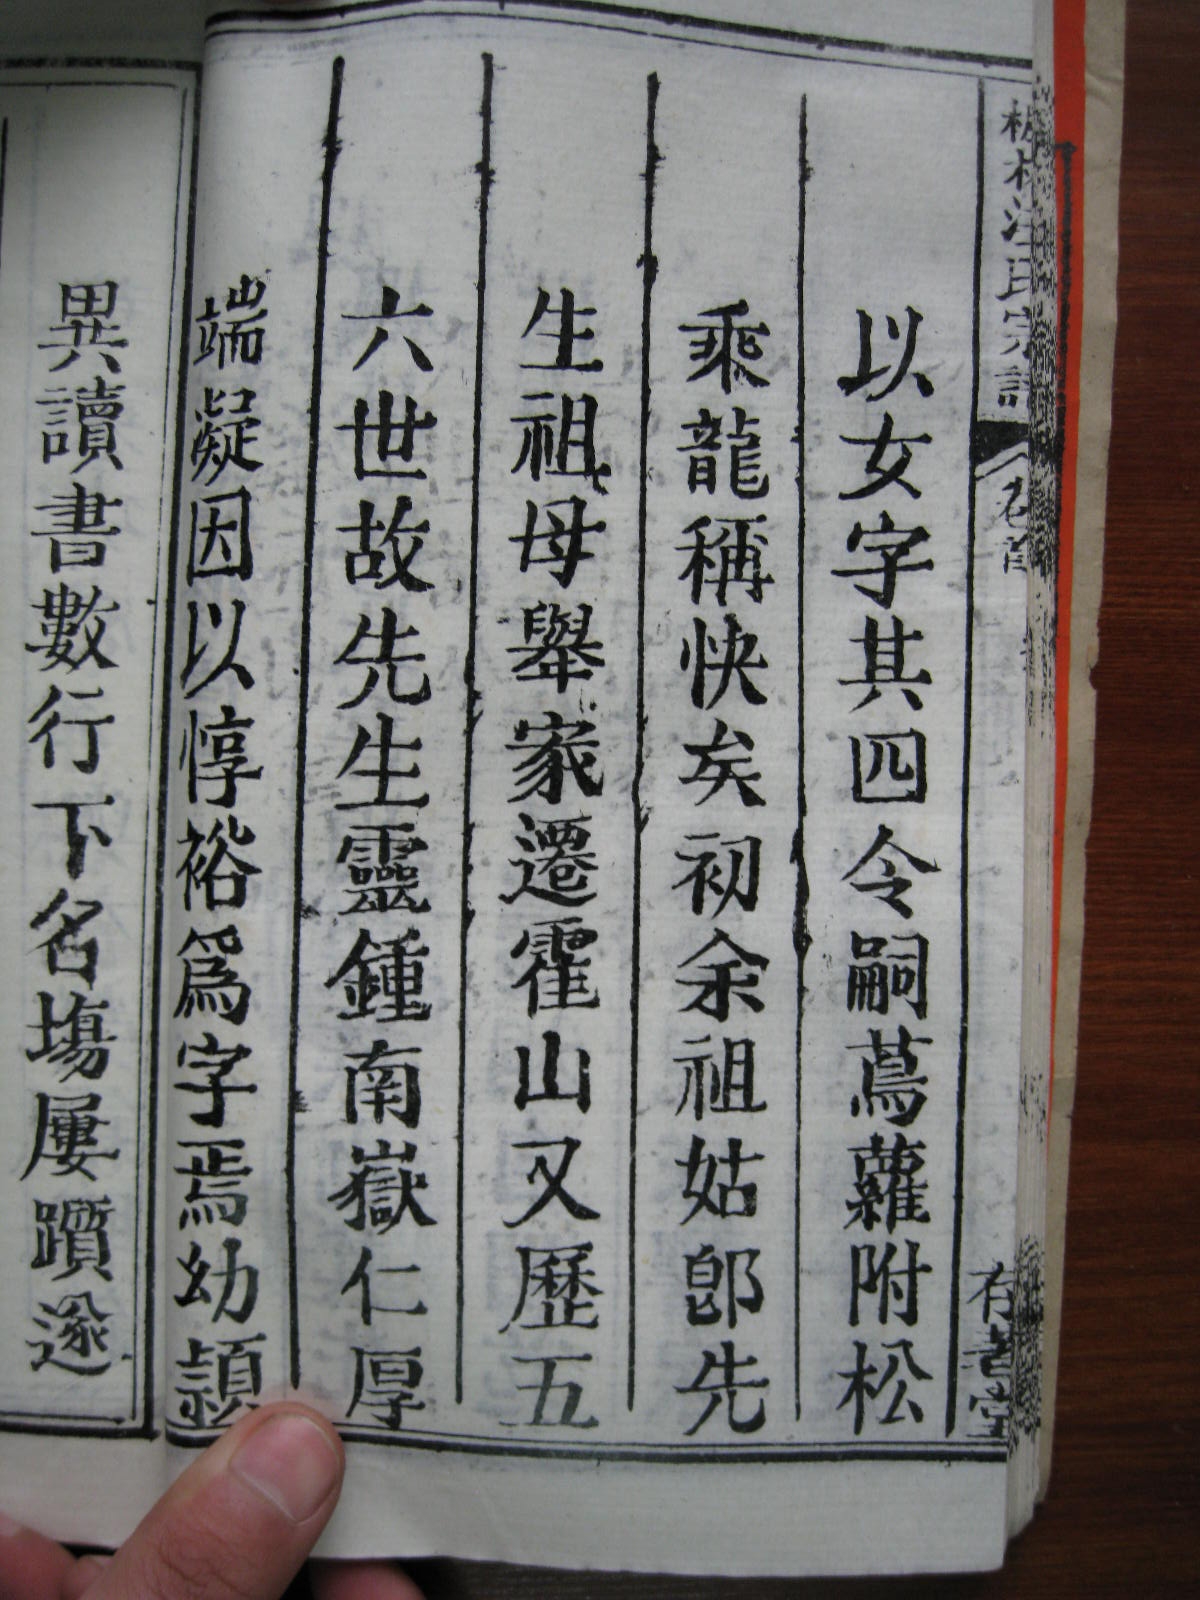 汪氏宗譜 卷首 有著堂
以女字其四令嗣蔦蘿附松
乘龍稱快矣初余祖姑卽先
生祖母舉家遷霍山又歷五
六世故先生靈鍾南嶽仁厚
端凝因以惇裕爲字焉幼頴
異讀書數行下名塲屢躓遂